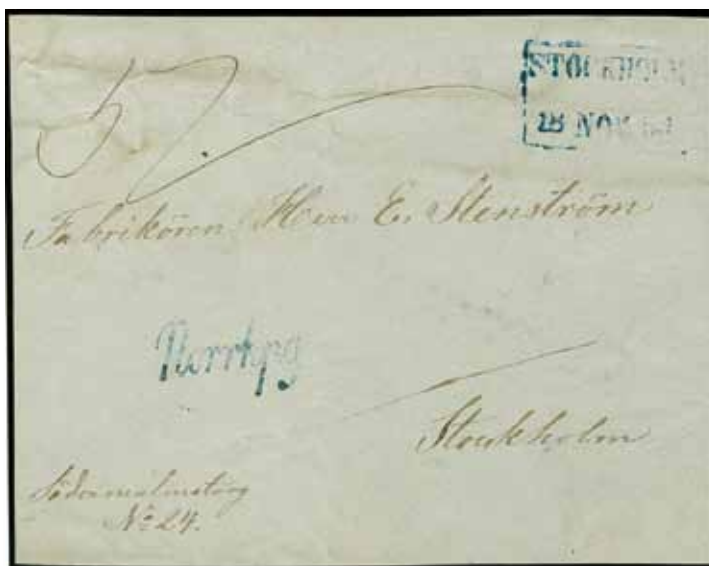 57.
STOCKHOLM
18 NOV
Fabrikören Herr E. Stenström
Norrkpg
Stockholm
Södermalmstorg
No 24.